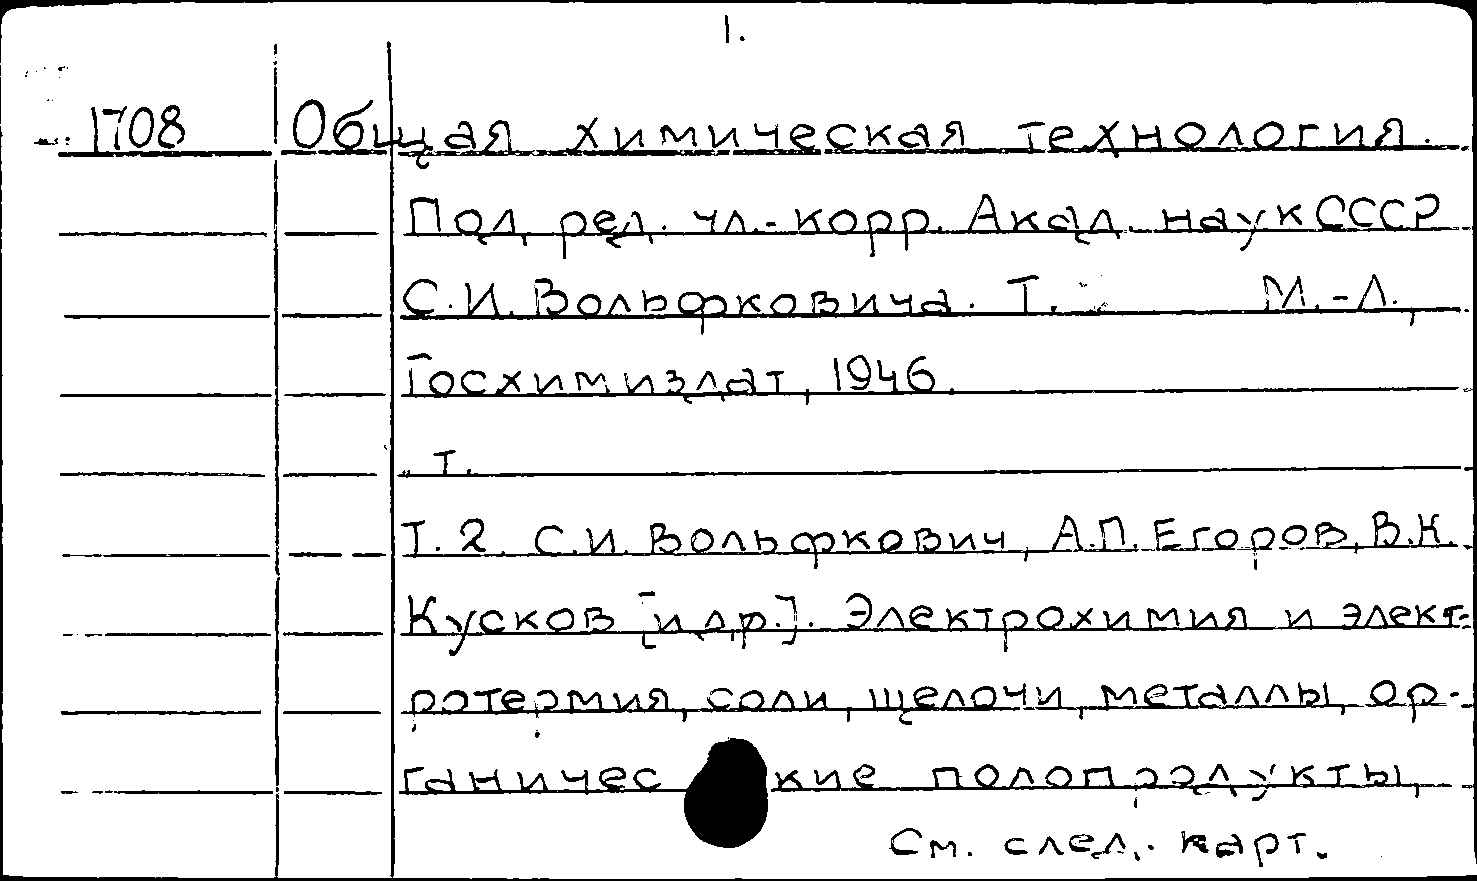 1.
1708 Общая химическая технология.
Под ред. чл.-корр. Акад. наук СССР
С.И. Вольфковича. Т. М.-Л.,
Госхимиздат, 1946.
т.
Т. 2. С.И. Вольфкович, А.П. Егоров, В.К.
Кусков [и др.]. Электрохимия и элект-
ротермия, соли, щелочи, металлы, ор-
ганичес кие полопродукты,
См. след. карт.